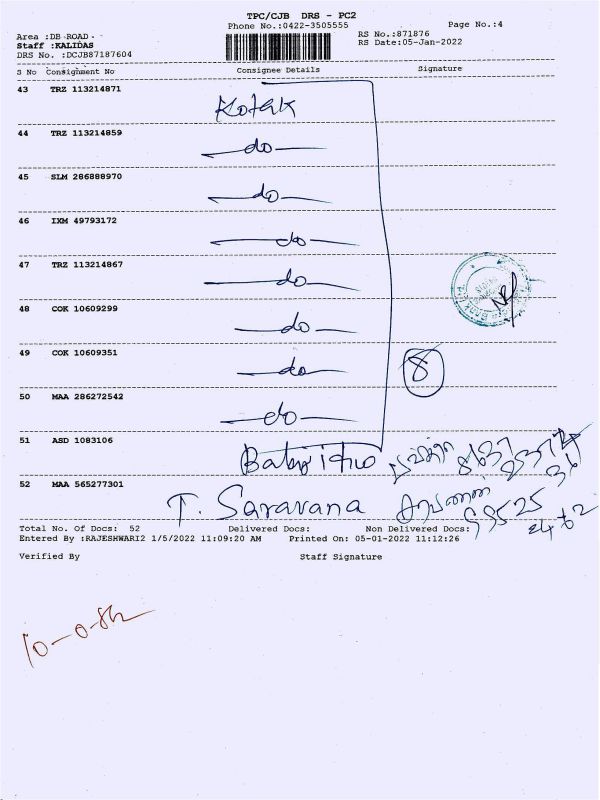 TPC/CJB DRS - PC2
Phone No.:0422-3505555 Page No.:4
Area :DB ROAD RS No.:871876
Staff :KALIDAS RS Date:05-Jan-2022
DRS No. :DCJB87187604
S No Consignment No Consignee Details Signature
43 TRZ 113214871 Kotak
44 TRZ 113214859 do
45 SLM 286888970 do
46 IXM 49793172 do
47 TRZ 113214867 do
48 COK 10609299 do
49 COK 10609351 do 8
50 MAA 286272542 do
51 ASD 1083106
52 MAA 565277301 T. Saravana சரவணன்
Total No. Of Docs: 52 Delivered Docs: Non Delivered Docs:
Entered By :RAJESHWARI2 1/5/2022 11:09:20 AM Printed On: 05-01-2022 11:12:26
Verified By Staff Signature